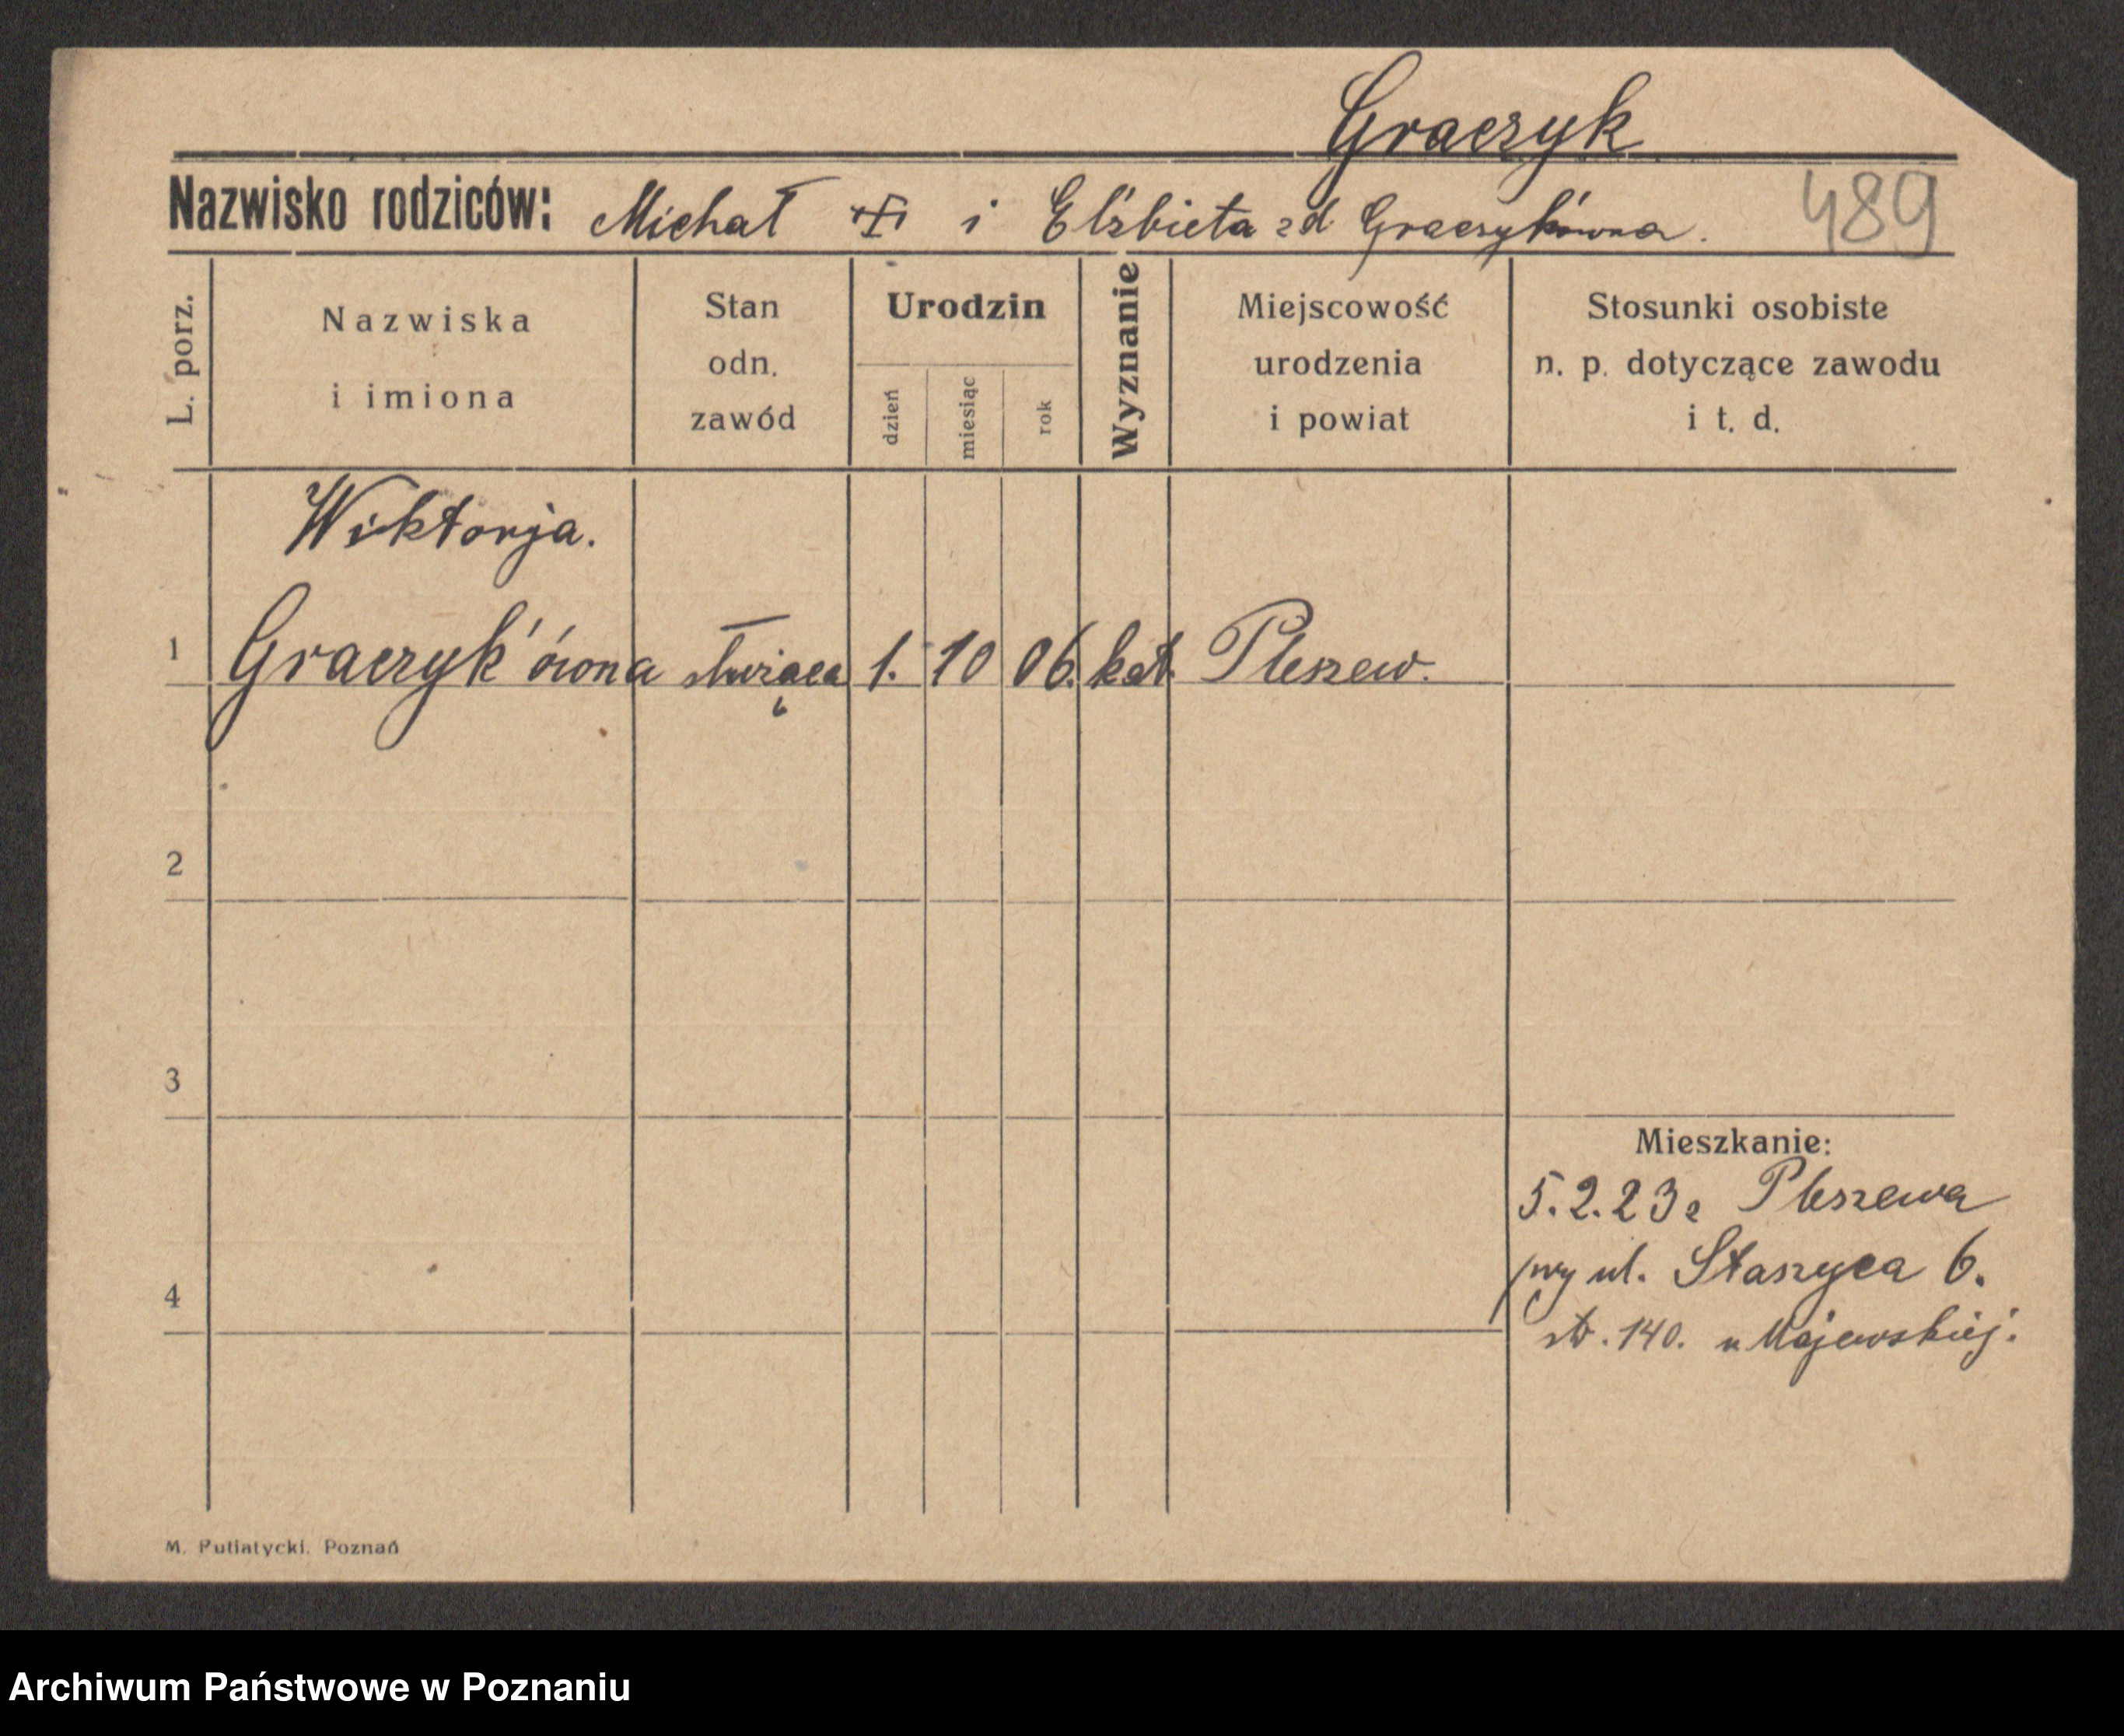 Graczyk
Nazwisko rodziców: Michał i Elżbieta zd Graczykówna. 489
L. porz.
Nazwiska
i imiona
Stan
odn.
zawód
Urodzin
dzień
miesiąc
rok
Wyznanie
Miejscowość
urodzenia
i powiat
Stosunki osobiste
n. p. dotyczące zawodu
i t. d.
Wiktorja.
1 Graczyk'ówna służąca 1. 10 06. kat. Pleszew.
2
3
Mieszkanie:
5.2.23 z Pleszewa
przy ul. Staszyca 6.
4
str. 140. u Majewskiej.
M. Putiatycki. Poznań
Archiwum Państwowe w Poznaniu